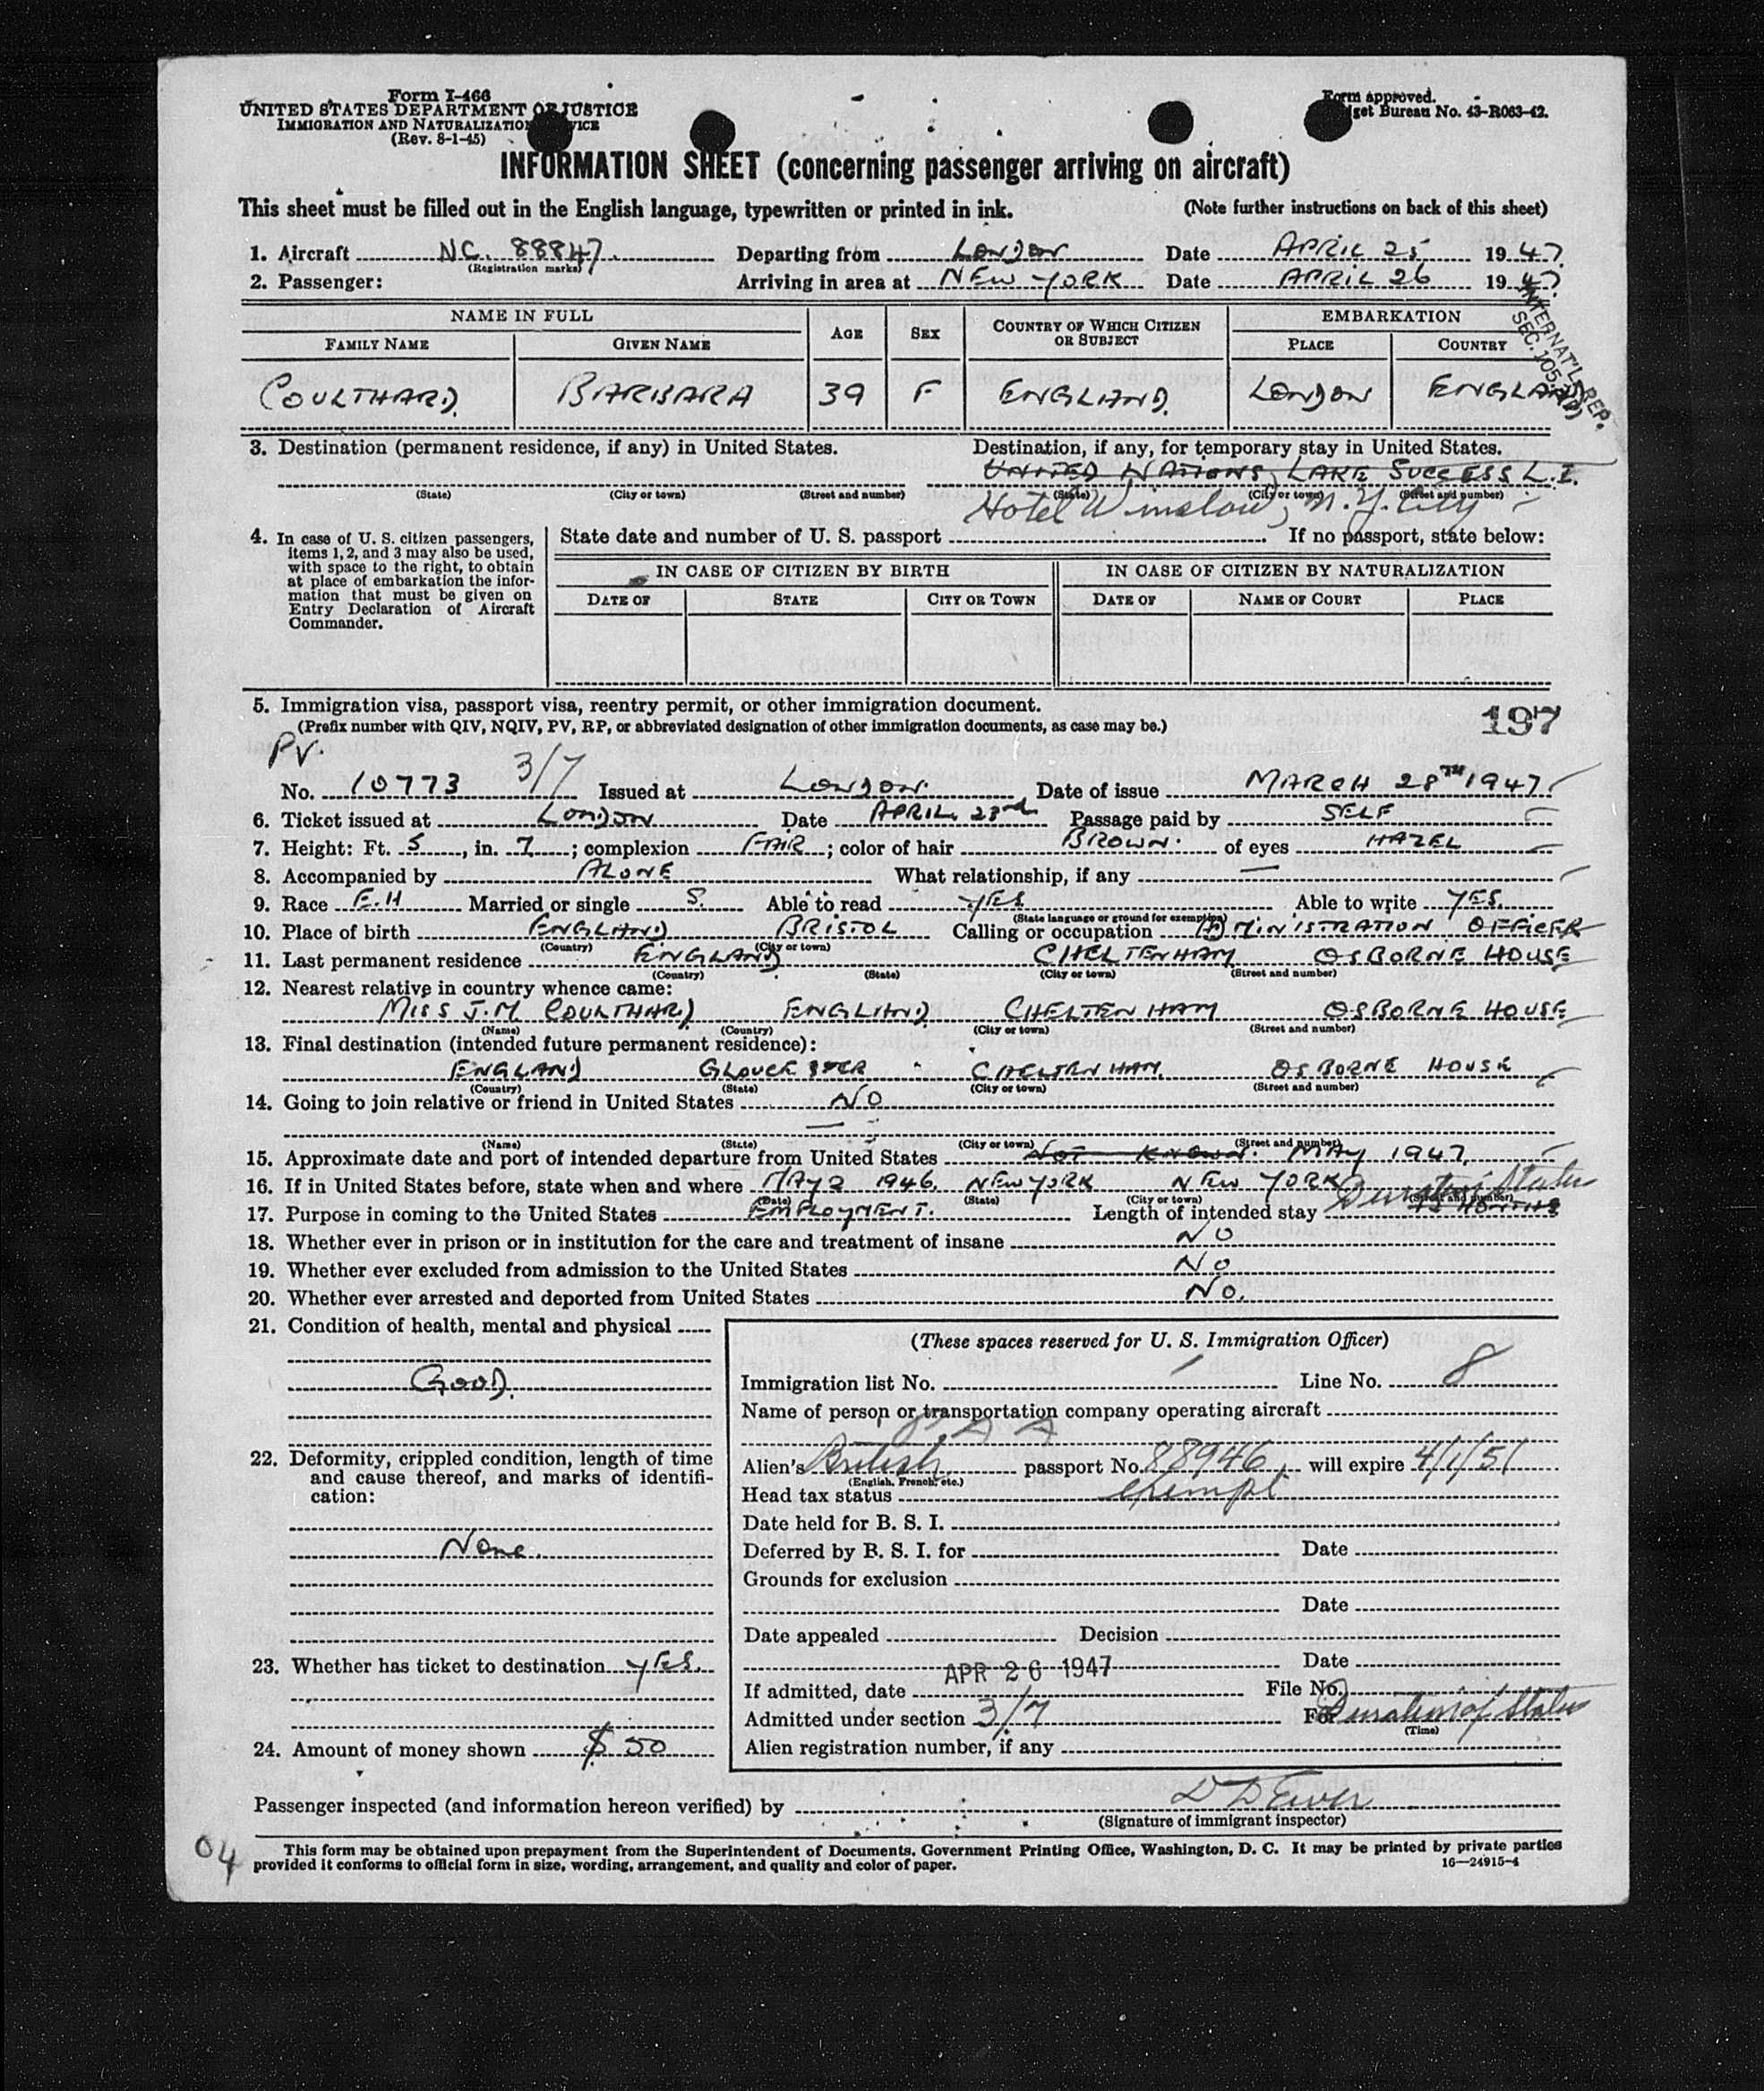 Form I-466
UNITED STATES DEPARTMENT OF JUSTICE
IMMIGRATION AND NATURALIZATION SERVICE
(Rev. 8-1-45)
Form approved.
Budget Bureau No. 43-R063-42.
INFORMATION SHEET (concerning passenger arriving on aircraft)
This sheet must be filled out in the English language, typewritten or printed in ink. (Note further instructions on back of this sheet)
1. Aircraft NC. 88847. Departing from LONDON Date APRIL 25 1947.
(Registration marks)
2. Passenger: Arriving in area at NEW YORK Date APRIL 26 1947
INTERNAT'L REP.
SEC. 105.3(D)
NAME IN FULL AGE SEX COUNTRY OF WHICH CITIZEN OR SUBJECT EMBARKATION
FAMILY NAME GIVEN NAME PLACE COUNTRY
COULTHARD. BARBARA 39 F ENGLAND. LONDON ENGLAND
3. Destination (permanent residence, if any) in United States. Destination, if any, for temporary stay in United States.
UNITED NATIONS, LAKE SUCCESS L.I.
(State) (City or town) (Street and number) (State) (City or town) (Street and number)
Hotel Winslow, N.Y. City
4. In case of U. S. citizen passengers, items 1, 2, and 3 may also be used, with space to the right, to obtain at place of embarkation the information that must be given on Entry Declaration of Aircraft Commander.
State date and number of U. S. passport If no passport, state below:
IN CASE OF CITIZEN BY BIRTH IN CASE OF CITIZEN BY NATURALIZATION
DATE OF STATE CITY OR TOWN DATE OF NAME OF COURT PLACE
5. Immigration visa, passport visa, reentry permit, or other immigration document.
(Prefix number with QIV, NQIV, PV, RP, or abbreviated designation of other immigration documents, as case may be.)
197
PV.
No. 10773 3/7 Issued at LONDON. Date of issue MARCH 28TH 1947.
6. Ticket issued at LONDON Date APRIL 23rd Passage paid by SELF
7. Height: Ft. 5, in. 7; complexion FAIR; color of hair BROWN. of eyes HAZEL
8. Accompanied by ALONE What relationship, if any —
9. Race E.H Married or single S. Able to read YES Able to write YES.
(State language or ground for exemption)
10. Place of birth ENGLAND BRISTOL Calling or occupation ADMINISTRATION OFFICER
(Country) (City or town)
11. Last permanent residence ENGLAND CHELTENHAM OSBORNE HOUSE
(Country) (State) (City or town) (Street and number)
12. Nearest relative in country whence came:
MISS J.M. COULTHARD ENGLAND CHELTENHAM OSBORNE HOUSE
(Name) (Country) (City or town) (Street and number)
13. Final destination (intended future permanent residence):
ENGLAND GLOUCESTER CHELTENHAM. OSBORNE HOUSE
(Country) (State) (City or town) (Street and number)
14. Going to join relative or friend in United States NO
—
(Name) (State) (City or town) (Street and number)
15. Approximate date and port of intended departure from United States NOT KNOWN. MAY 1947.
16. If in United States before, state when and where MAY 2 1946. NEW YORK NEW YORK
(Date) (State) (City or town) (Street and number)
Duration Status
17. Purpose in coming to the United States EMPLOYMENT. Length of intended stay MONTHS
18. Whether ever in prison or in institution for the care and treatment of insane NO
19. Whether ever excluded from admission to the United States NO
20. Whether ever arrested and deported from United States NO.
21. Condition of health, mental and physical
GOOD.
22. Deformity, crippled condition, length of time and cause thereof, and marks of identification:
None.
23. Whether has ticket to destination YES.
24. Amount of money shown $ 50
(These spaces reserved for U. S. Immigration Officer)
Immigration list No. Line No. 8
Name of person or transportation company operating aircraft
P A A
Alien's British passport No. 88946 will expire 4/1/51
(English, French, etc.)
Head tax status exempt
Date held for B. S. I.
Deferred by B. S. I. for Date
Grounds for exclusion
Date
Date appealed Decision
Date
If admitted, date APR 26 1947 File No.
Admitted under section 3/7 For Duration of Status
(Time)
Alien registration number, if any
Passenger inspected (and information hereon verified) by D D Ewer
(Signature of immigrant inspector)
04
This form may be obtained upon prepayment from the Superintendent of Documents, Government Printing Office, Washington, D. C. It may be printed by private parties
provided it conforms to official form in size, wording, arrangement, and quality and color of paper. 16—24915-4